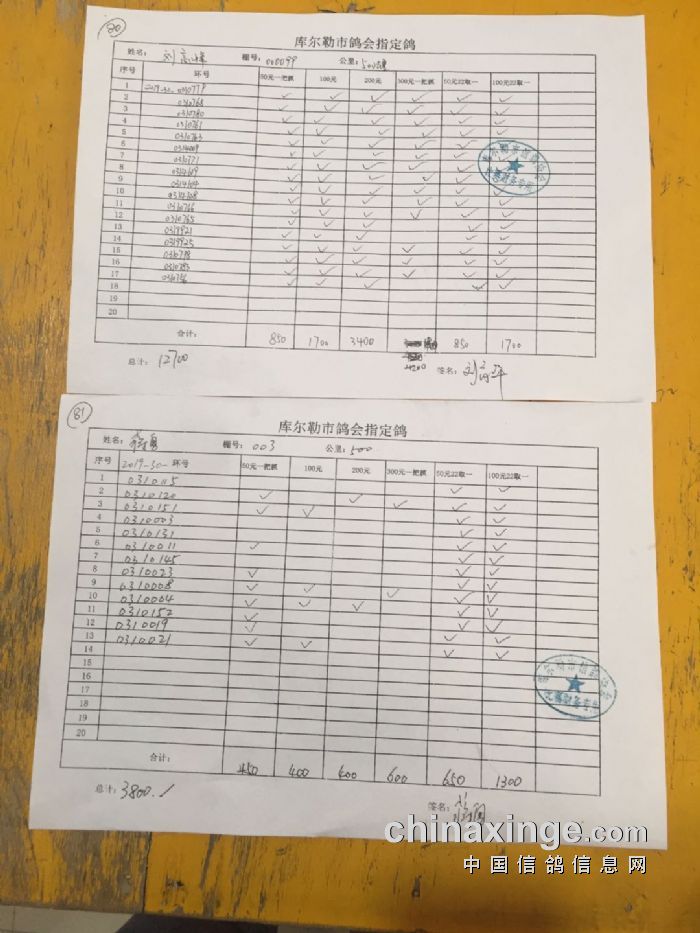 库尔勒市鸽会指定鸽
姓名: 刘 棚号: 000099 公里: 500
序号 环号 50元一把抓 100元 200元 300元一把抓 50元22取一 100元22取一
1 2019-30-0310779
2 0310768
3 0310780
4 0310761
5 0310763
6 0314009
7 0310771
8
9
10
11 0310766
12 0310765
13 0319921
14 0319925
15
16 0310783
17
18
19
20
合计: 850 1700 3400 850 1700
总计: 12700
签名:
81
库尔勒市鸽会指定鸽
姓名: 棚号: 003 公里: 500
序号 2019-30- 环号 50元一把抓 100元 200元 300元一把抓 50元22取一 100元22取一
1 0310115
2 0310120
3 0310151
4 0310003
5 0310131
6 0310011
7 0310145
8 0310023
9 0310008
10 0310004
11 0310152
12 0310019
13 0310021
14
15
16
17
18
19
20
合计: 450 400 400 600 650 1300
总计: 3800.
签名:
chinaxinge.com
中国信鸽信息网